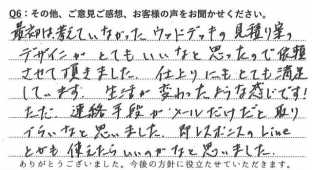 Q6：その他、ご意見ご感想、お客様の声をお聞かせください。
最初は考えていなかったウッドデッキの見積り案の
デザインがとてもいいなと思ったので依頼
させて頂きました。仕上りにもとても満足
しています。生活が変わったような感じです!
ただ、連絡手段がメールだけだと取り
づらいなと思いました。即レスポンスのLine
とかも使えたらいいのかなと思いました。
ありがとうございました。今後の方針に役立たせていただきます。